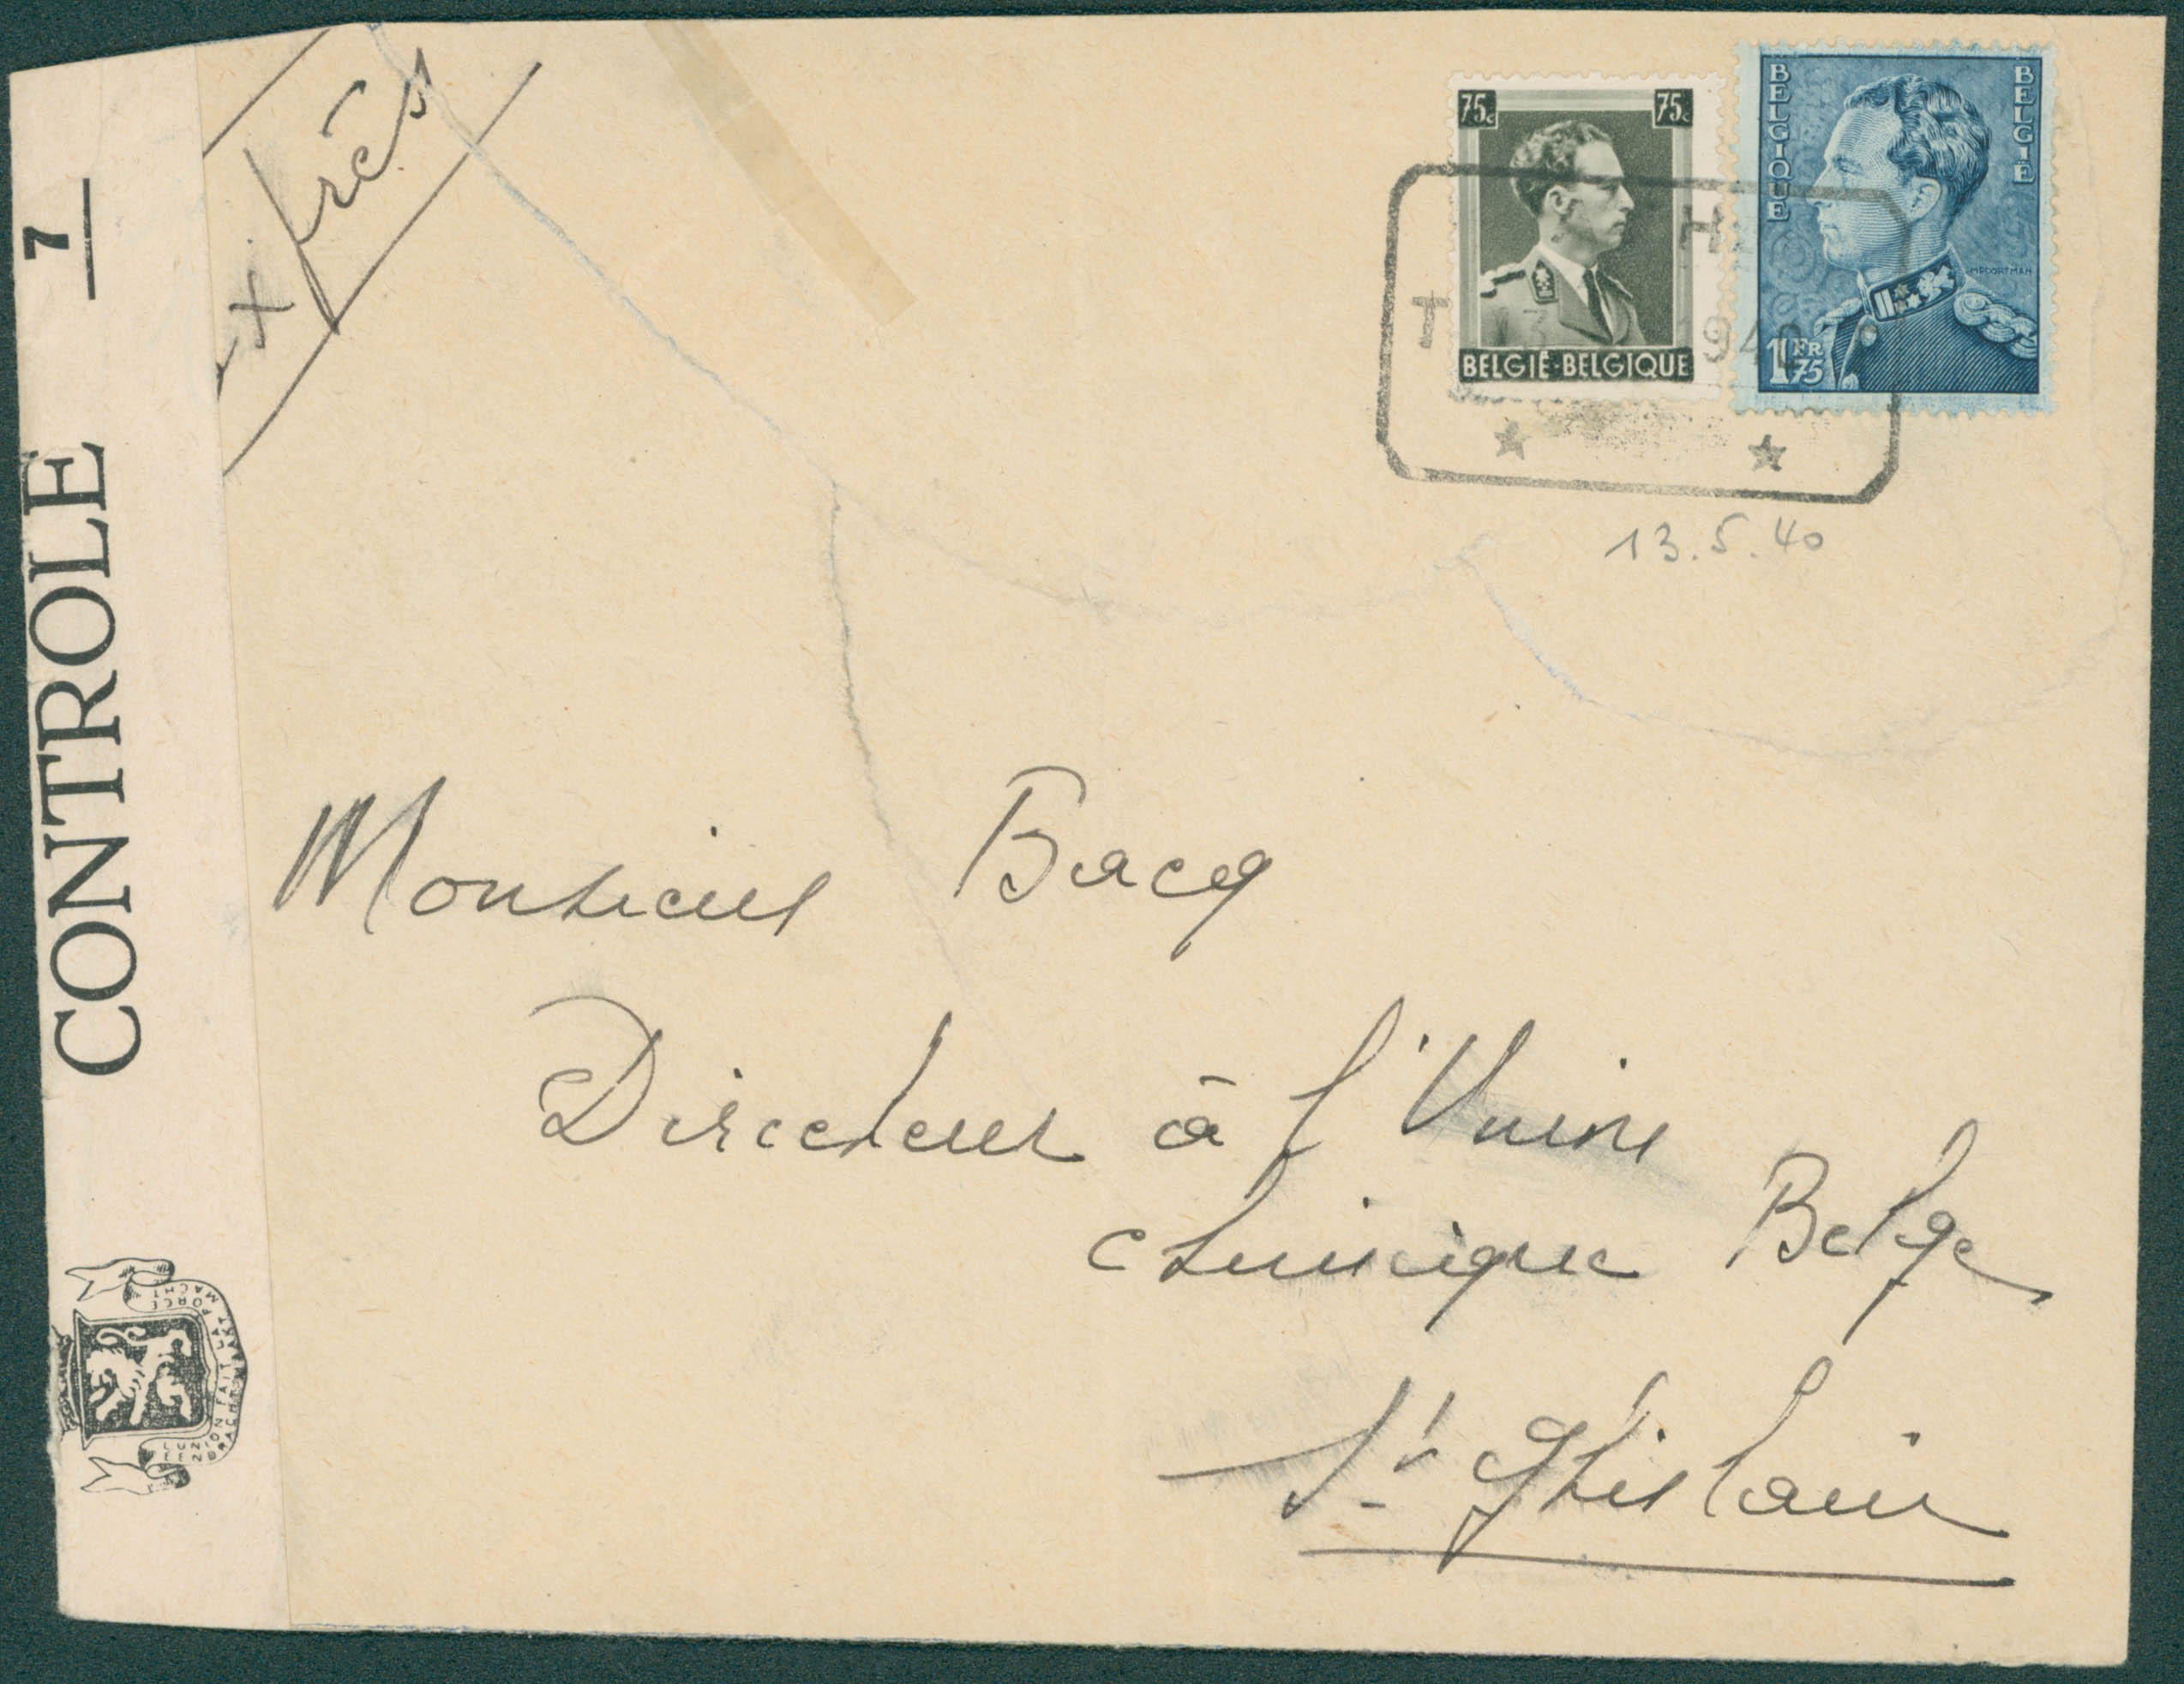 Exprès
CONTROLE 7
L'UNION FAIT LA FORCE
EENDRACHT MAAKT MACHT
75c 75c
BELGIË-BELGIQUE
BELGIQUE BELGIË
POORTMAN
1 FR 75
H
T 13 1940
13.5.40
Monsieur Bacq
Directeur à l'Usine
chimique Belge
St Ghislain